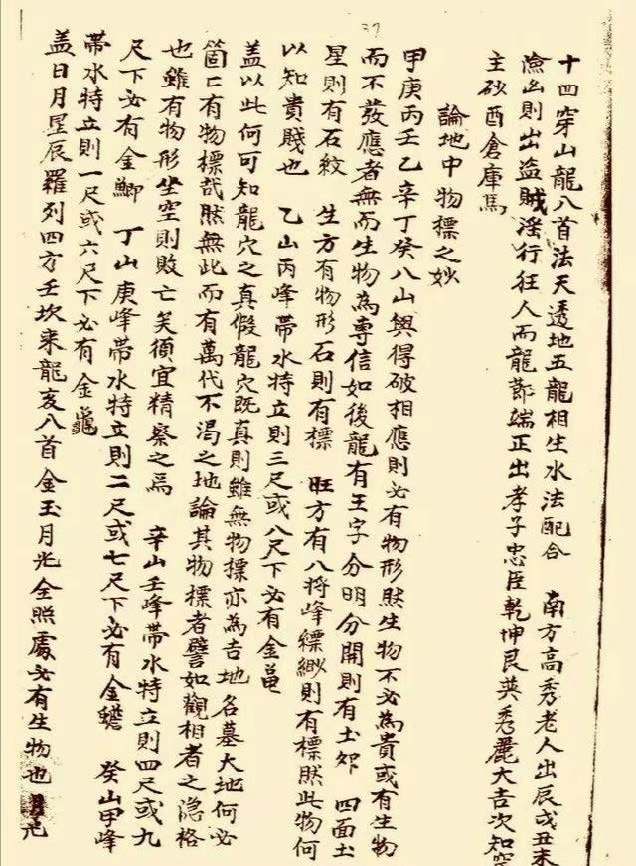 37
十四穿山龍八首法天透地五龍相生水法配合 南方高秀老人出辰戌丑未
凶則出盜賊淫行狂人而龍節端正出孝子忠臣乾坤艮英秀麗大吉次知
主砂酉倉庫馬
論地中物標之妙
甲庚丙壬乙辛丁癸八山與得破相應則必有物形然生物不必為貴或有生物
而不發應者無而生物為專信如後龍有王字分明分開則有土卵 四面土
星則有石紋 生方有物形石則有標 旺方有八將峰縹緲則有標然此物何
以知貴賤也 乙山丙峰帶水特立則三尺或八尺下必有金黽
盖以此何可知龍穴之真假龍穴既真則雖無物標亦為吉地名墓大地何必
箇〻有物標哉然無此而有萬代不渴之地論其物標者譬如觀相者之隐格
也雖有物形坐空則敗亡矣須宜精察之焉 辛山壬峰帶水特立則四尺或九
尺下必有金鯽 丁山庚峰帶水特立則二尺或七尺下必有金蟾 癸山甲峰
帶水特立則一尺或六尺下必有金龜
盖日月星辰羅列四方壬坎来龍亥八首金玉月光全照處必有生物也